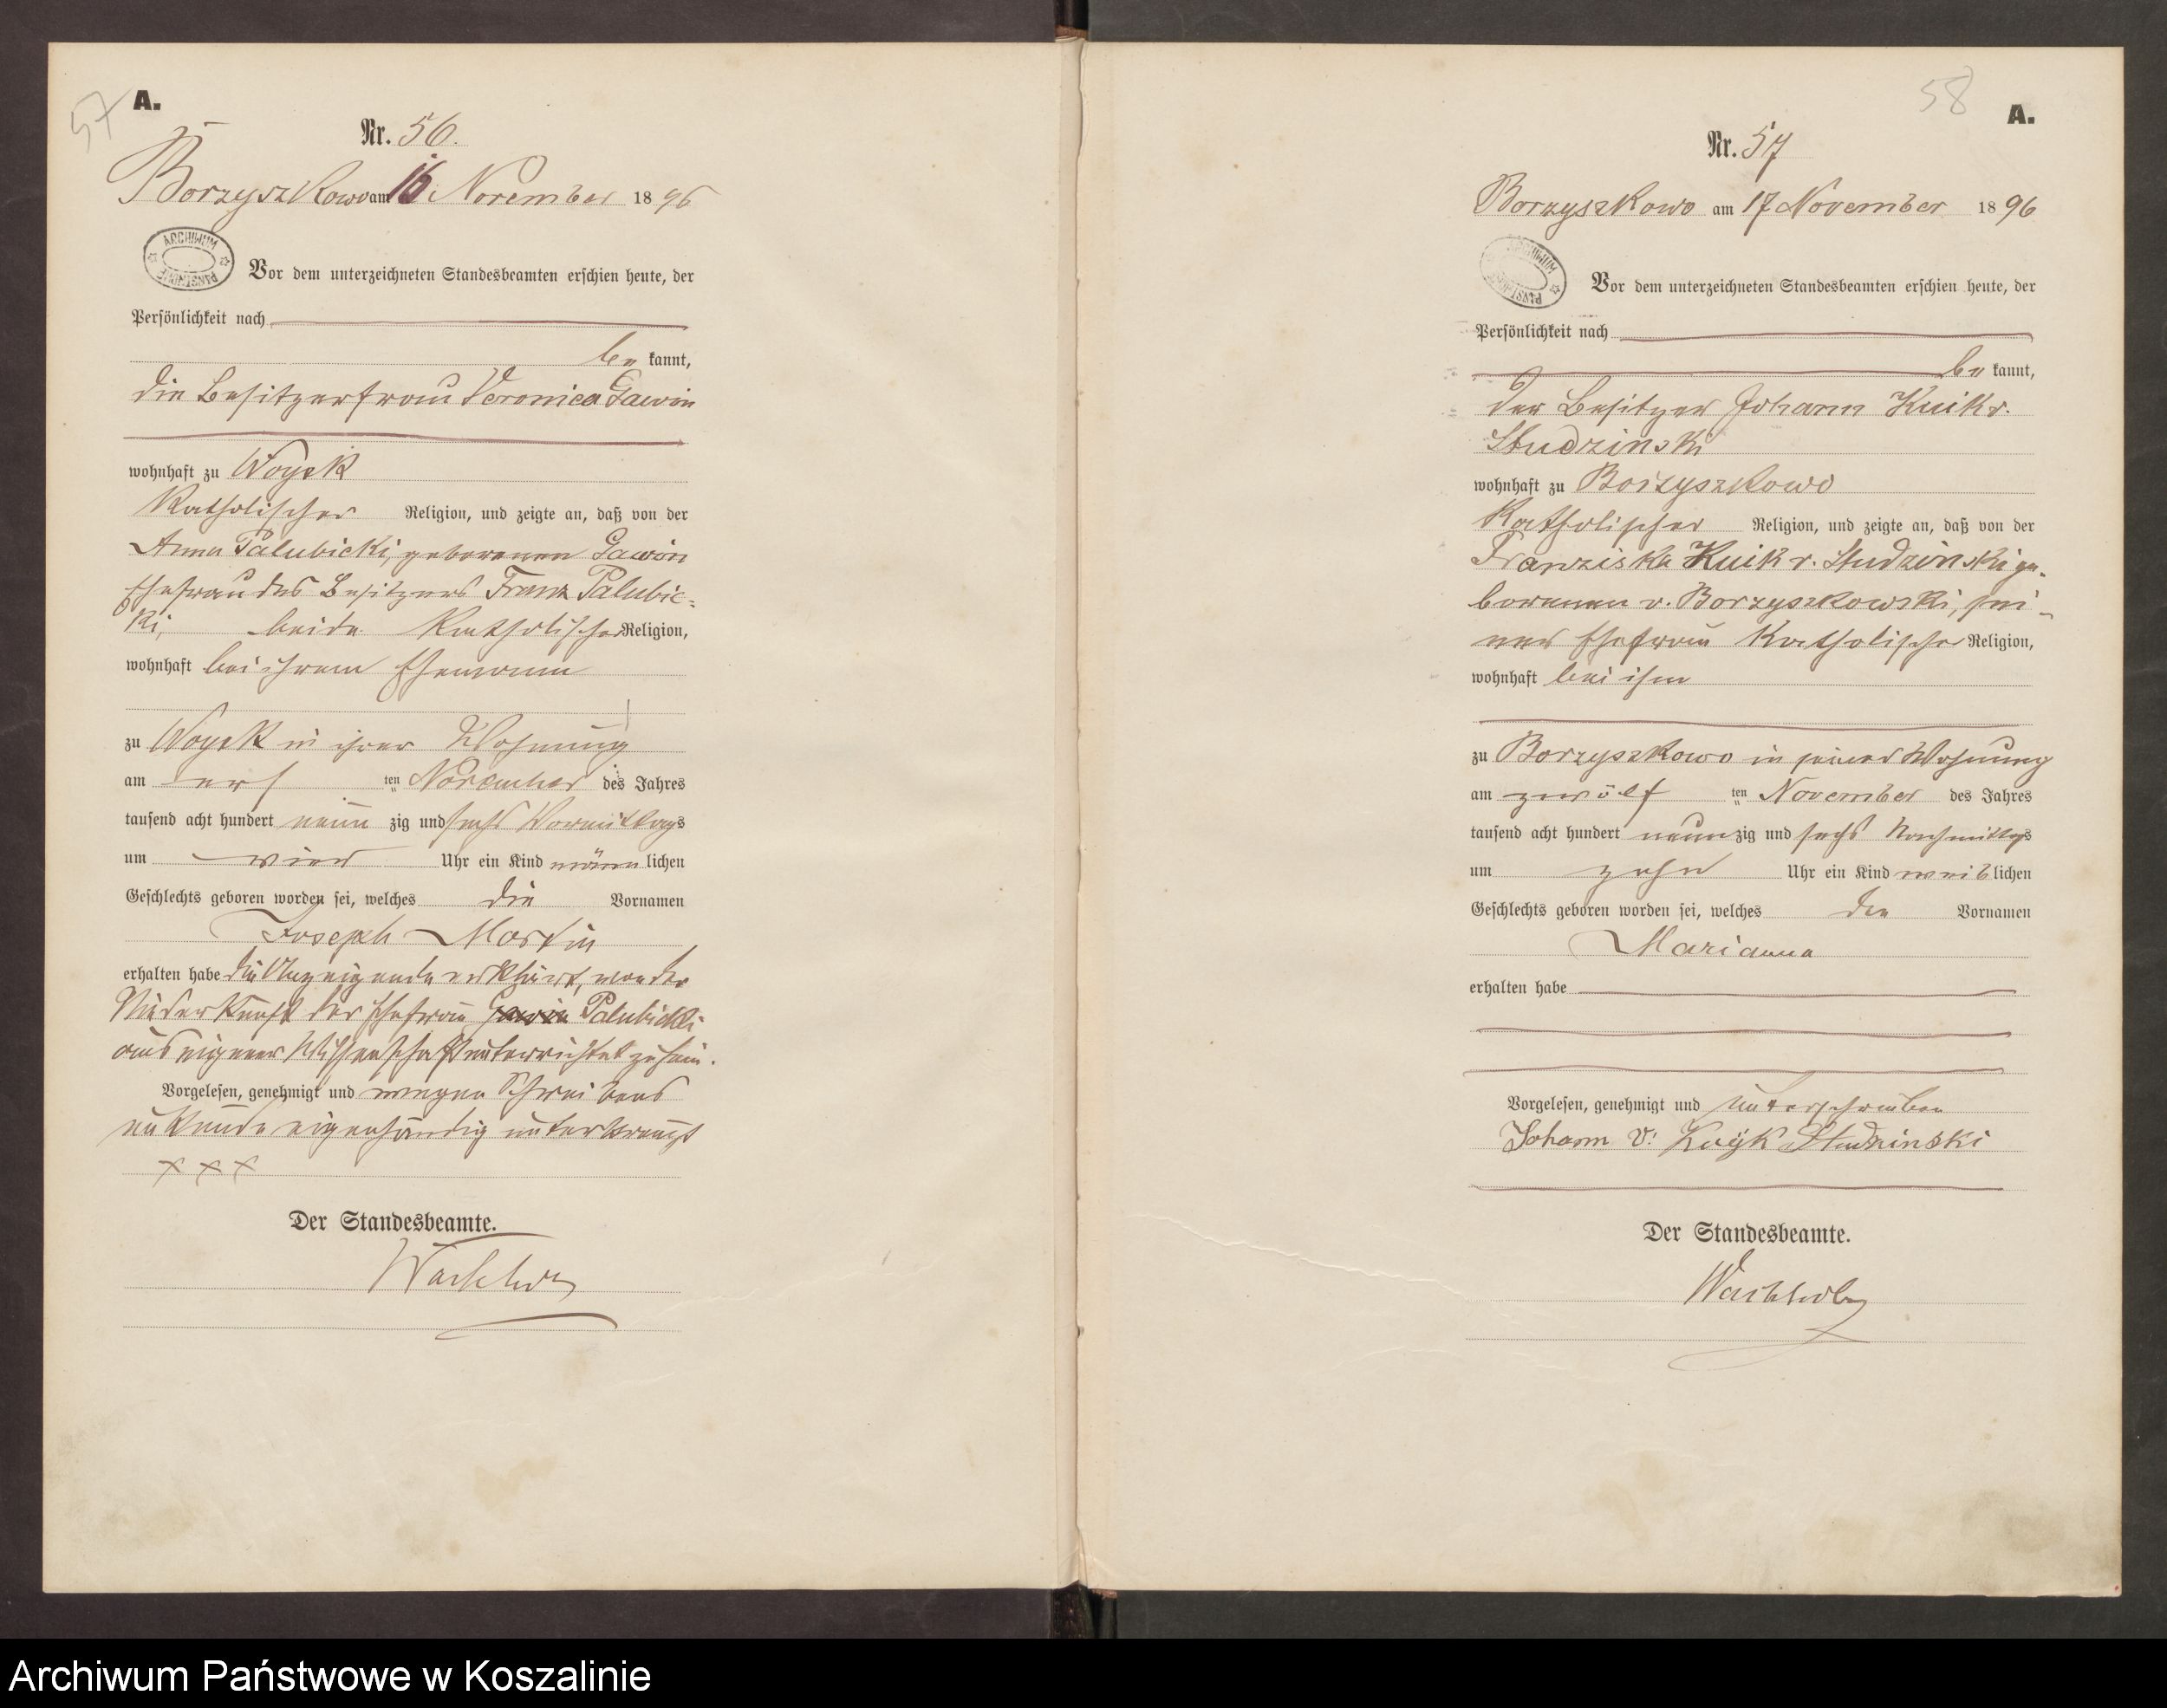 57
A.
Nr. 56.
Borzyszkowo am 16 November 1896
ARCHIWUM
PAŃSTWOWE
Vor dem unterzeichneten Standesbeamten erschien heute, der
Persönlichkeit nach
be kannt,
die Besitzerfrau Veronica Gawin
wohnhaft zu Woysk
Katholischer Religion, und zeigte an, daß von der
Anna Palubicki, geborenen Gawin
Ehefrau des Besitzers Franz Palubic=
ki, beide Katholischer Religion,
wohnhaft bei ihrem Ehemann
zu Woysk in ihrer Wohnung
am ten November des Jahres
tausend acht hundert neun zig und sechs Vormittags
um vier Uhr ein Kind männ lichen
Geschlechts geboren worden sei, welches die Vornamen
Joseph Martin
erhalten habe die Anzeigende erklärt, von der
Niederkunft der Ehefrau Gawin Palubicki
aus eigener Wissenschaft unterrichtet zu sein.
Vorgelesen, genehmigt und wegen Schreibens
unkunde eigenhändig unterkreuzt
x x x
Der Standesbeamte.
58
A.
Nr. 57
Borzyszkowo am 17 November 1896
ARCHIWUM
PAŃSTWOWE
Vor dem unterzeichneten Standesbeamten erschien heute, der
Persönlichkeit nach
be kannt,
der Besitzer Johann Kuik v.
Studzinski
wohnhaft zu Borzyszkowo
Katholischer Religion, und zeigte an, daß von der
Franziska Kuik v. Studzinski ge-
borenen v. Borzyszkowski, sei-
ner Ehefrau Katholischer Religion,
wohnhaft bei ihm
zu Borzyszkowo in seiner Wohnung
am zwölf ten November des Jahres
tausend acht hundert neun zig und sechs Nachmittags
um zehn Uhr ein Kind weib lichen
Geschlechts geboren worden sei, welches den Vornamen
Marianna
erhalten habe
Vorgelesen, genehmigt und unterschrieben
Johann v: Kuijk Studzinski
Der Standesbeamte.
Archiwum Państwowe w Koszalinie